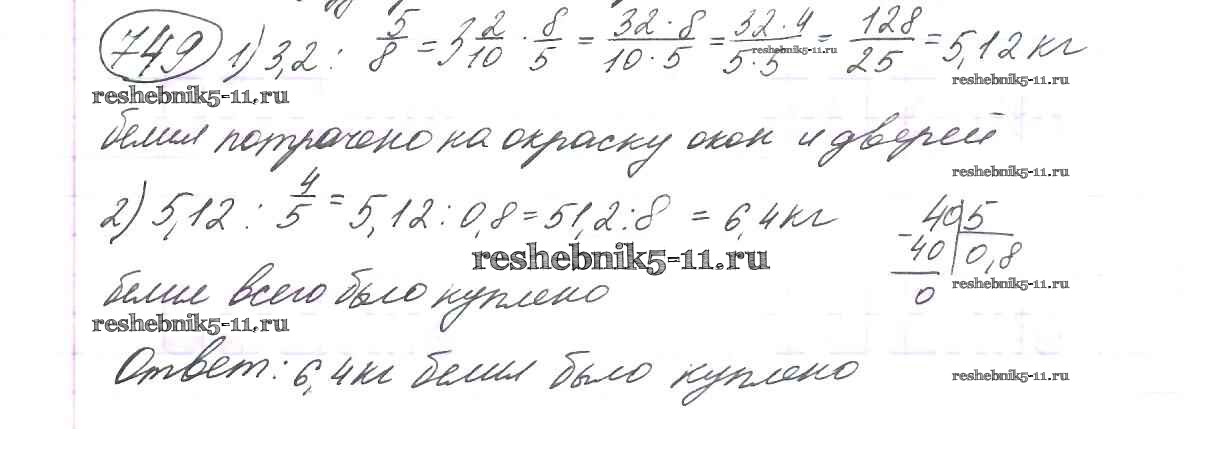 749 1) 3,2 : 5/8 = 3 2/10 · 8/5 = 32·8/10·5 = 32·4/5·5 = 128/25 = 5,12 кг
reshebnik5-11.ru
reshebnik5-11.ru
reshebnik5-11.ru
белил потрачено на окраску окон и дверей
reshebnik5-11.ru
2) 5,12 : 4/5 = 5,12 : 0,8 = 51,2 : 8 = 6,4 кг
40 5
- 40 0,8
0
reshebnik5-11.ru
reshebnik5-11.ru
белил всего было куплено
reshebnik5-11.ru
Ответ: 6,4 кг белил было куплено
reshebnik5-11.ru